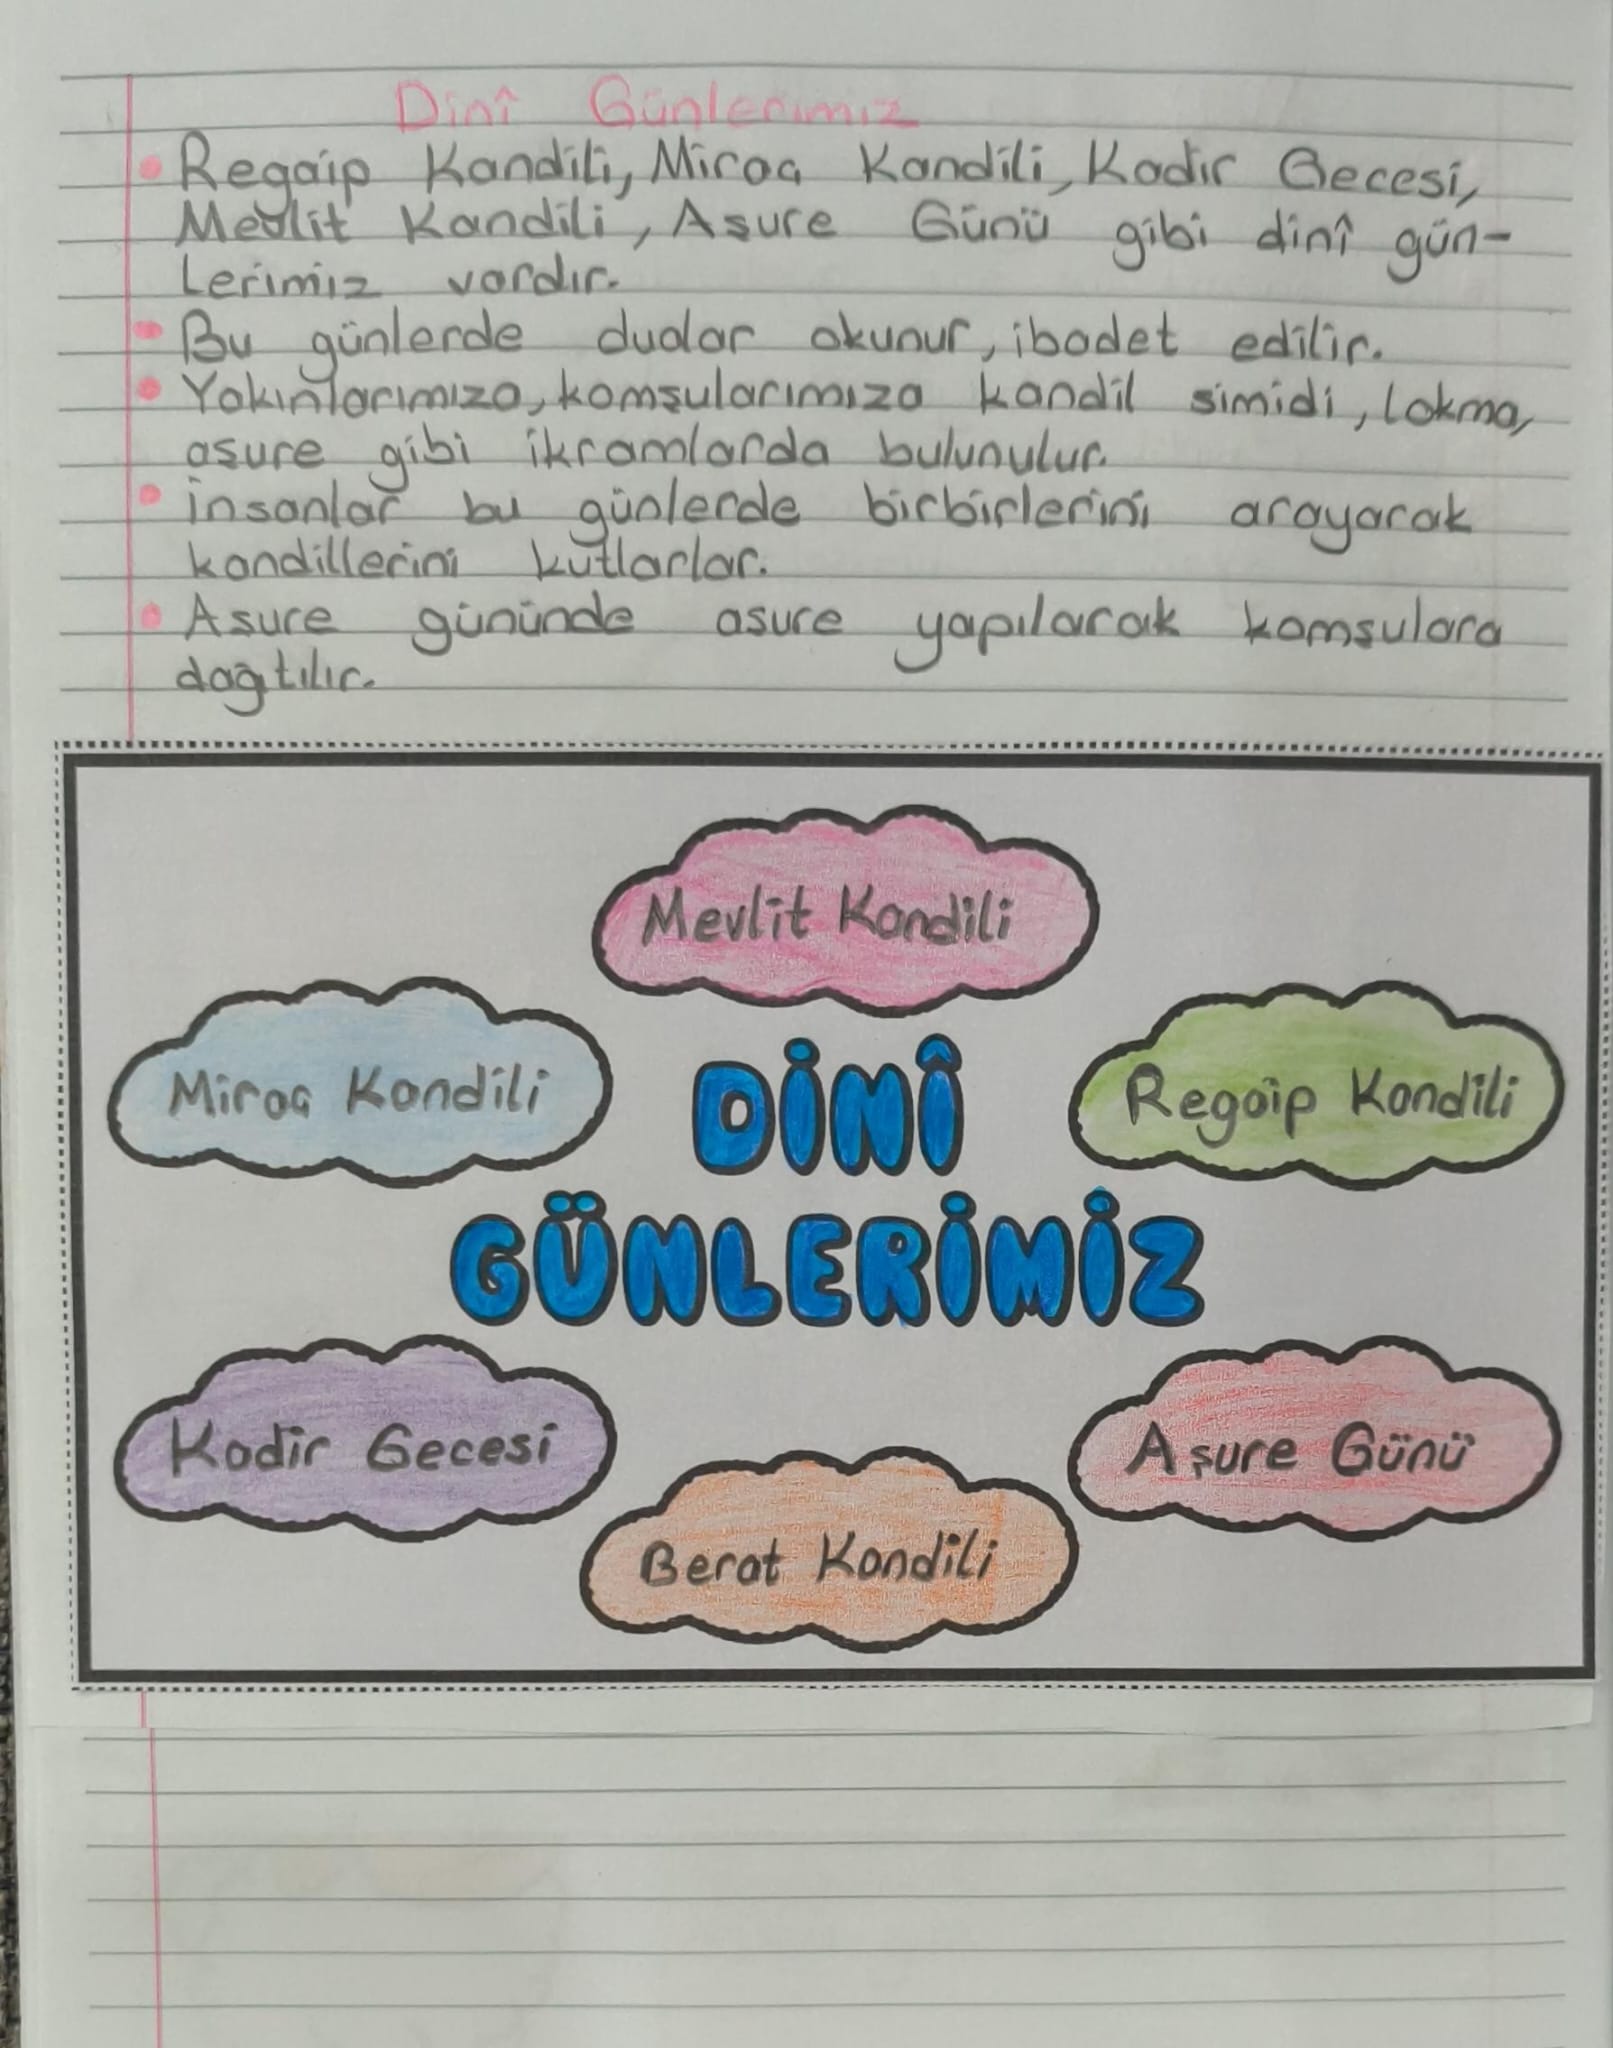 Dinî Günlerimiz
• Regaip Kandili, Miraç Kandili, Kadir Gecesi,
Mevlit Kandili, Aşure Günü gibi dinî gün-
lerimiz vardır.
• Bu günlerde dualar okunur, ibadet edilir.
• Yakınlarımıza, komşularımıza kandil simidi, lokma,
aşure gibi ikramlarda bulunulur.
• İnsanlar bu günlerde birbirlerini arayarak
kandillerini kutlarlar.
• Aşure gününde aşure yapılarak komşulara
dağıtılır.
Mevlit Kandili
Miraç Kandili
Regaip Kandili
DİNÎ
GÜNLERİMİZ
Kadir Gecesi
Aşure Günü
Berat Kandili